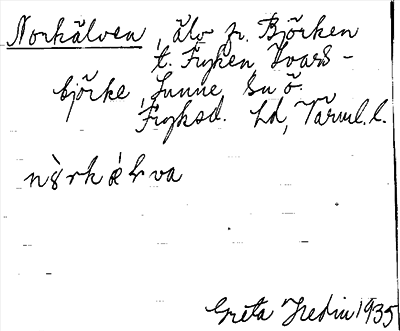 Norkälven, älv fr. Björken
t. Fryken Ivars-
björke, Sunne, Su ö.
Fryksd. hd, Värml. l.
Greta Hedin 1935